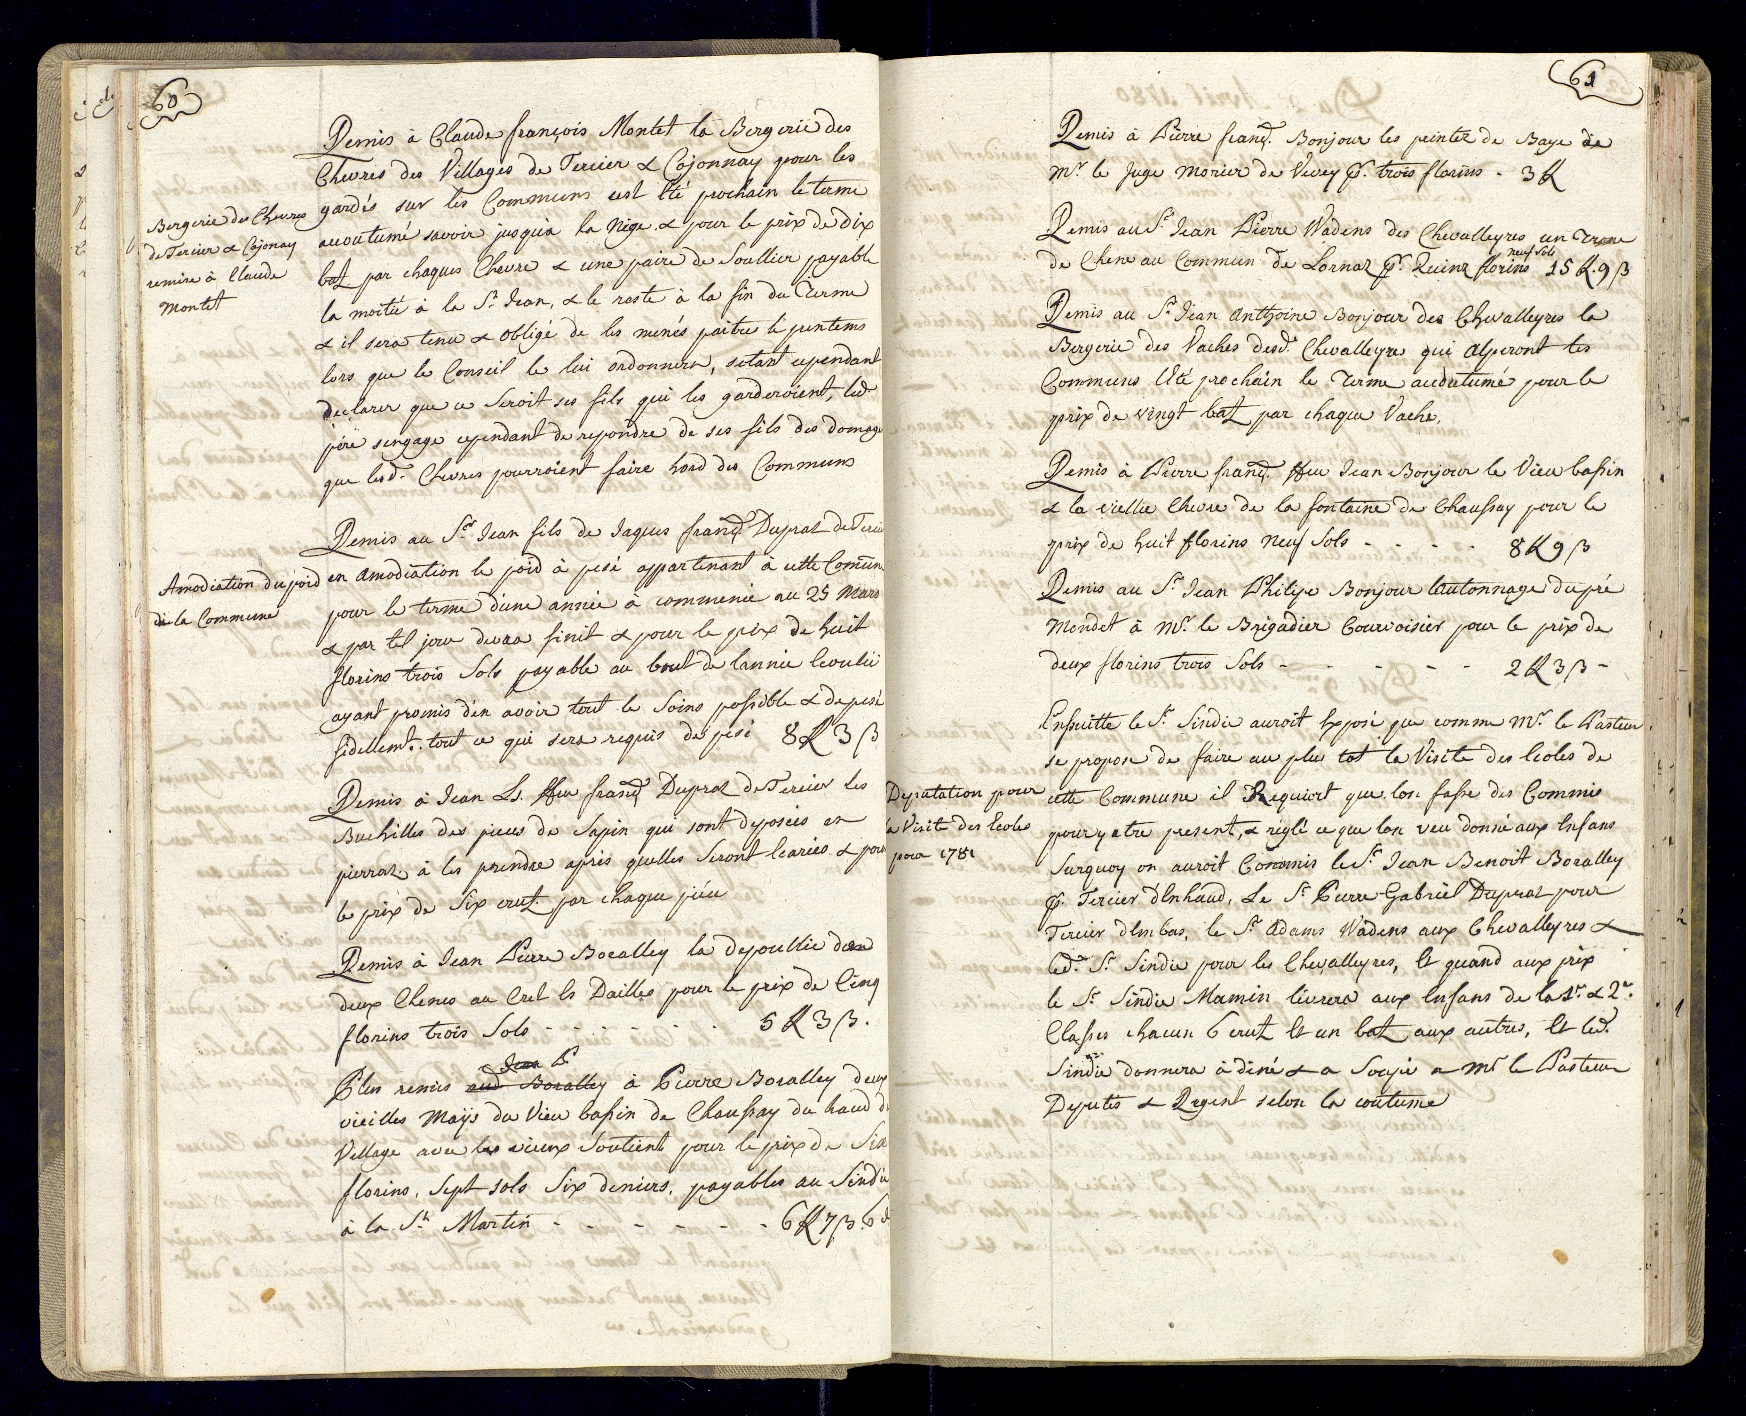 60
Remis à Claude françois Montet la Bergerie des
Chevres des Villages de Tercier & Cojonnay pour les
gardés sur les Communs cest lté prochain le terme
accoutumé savoir jusquà la Nège & pour le prix de dix
batz par chaques Chevre & une paire de Soullier payable
la moitié à la St. Jean, & le reste à la fin du Terme
& il sera tenu & obligé de les menés paitres le printems
lors que le Conseil le lui ordonnera, setant cependant
declarer que ce Seroit ses fils qui les garderoient, led.
père sengage cependant de repondre de ses fils des domage
que lesd. Chevres pourroient faire hord des Communs
Bergerie des Chevres
de Tercier & Cojonay
remise à Claude
Montet
Remis au Sr. Jean fils de Jaques franç. Dupraz de Tercier
en Amodiation le poid à pesé appartenant à cette Comune
pour le terme dune année à commencé au 25 Mars
& par tel jour devra finit & pour le prix de huit
florins trois Sols payable au bout de lannée Ecoulée
ayant promis d'en avoir tout le Soins possible & de pesé
fidellemt. tout ce qui sera requis de pesé 8 fl 3 ß
Amodiation du poid
de la Commune
Remis à Jean Ls. ffeu franç. Dupraz de Tercier les
Buchilles des pieces de Sapin qui sont deposées en
pierraz à les prendre après quelles Seront Ecariés & pour
le prix de Six crutz. par chaque pièce
Remis à Jean Pierre Boralley la depoullie des
deux Chenes au Cret Es Dailles pour le prix de Cinq
florins trois Sols - - - - - - 5 fl 3 ß.
Jean P.
Plus remis aud Boralley à Pierre Boralley deux
vieilles Mays du Vieu bassin de Chaussay du haud du
Village avec les vieux Soutient pour le prix de Six
florins, Sept sols Six deniers, payables au Sindic
à la St. Martin - - - - - - 6 fl 7 ß. 6 d
61
Remis à Pierre franç. Bonjour les peintez de Baye de
Mr. le Juge Monier de Vevey pr. trois florins - 3 fl
Remis au Sr. Jean Pierre Wadens des Chevalleyres un Trone
neuf sols
de Chene au Commun de Lornaz pr. Quinz florins 15 fl. 9 ß
Remis au Sr. Jean Anthoine Bonjour des Chevalleyres la
Bergerie des Vaches desd. Chevalleyre qui Alperont les
Communs l'Eté prochain le Terme accoutumé pour le
prix de vingt batz par chaque Vache.
Remis à Pierre franç. ffeu Jean Bonjour le Vieu bassin
& la viellie Chevre de la fontaine de Chaussay pour le
prix de huit florins neuf Sols - - - - 8 fl 9 ß
Remis au Sr. Jean Philipe Bonjour lautonnage du pré
Mondet à Mr. le Brigadier Courvoisier pour le prix de
deux florins trois Sols - - - - - - 2 fl 3 ß -
Ensuitte le Sr. Sindic auroit Exposé que comme Mr. le Pasteur
se propose de faire au plus tot la Visite des Ecoles de
cette Commune il Requiert que lon fasse des Commis
pour y etre present, & réglé ce que lon veu donné aux Enfans
Surquoy on auroit Commis le Sr. Jean Benoit Boralley
pr. Tercier dEnhaud, Le Sr. Pierre Gabriel Dupraz pour
Tercier dEmbas, le Sr. Adams Wadens aux Chevalleyres &
led. Sr. Sindic pour les Chevalleyres, Et quand aux prix
le Sr. Sindic Mamin livrera aux Enfans de la 1re. & 2e.
Classes chacun 6 crutz Et un batz aux autres, Et led.
Sindic donnera à diné & a Soupé a Mr le Pasteur
Deputés & Regent selon la coutume
Deputation pour
la Visite des Ecoles
pour 1781